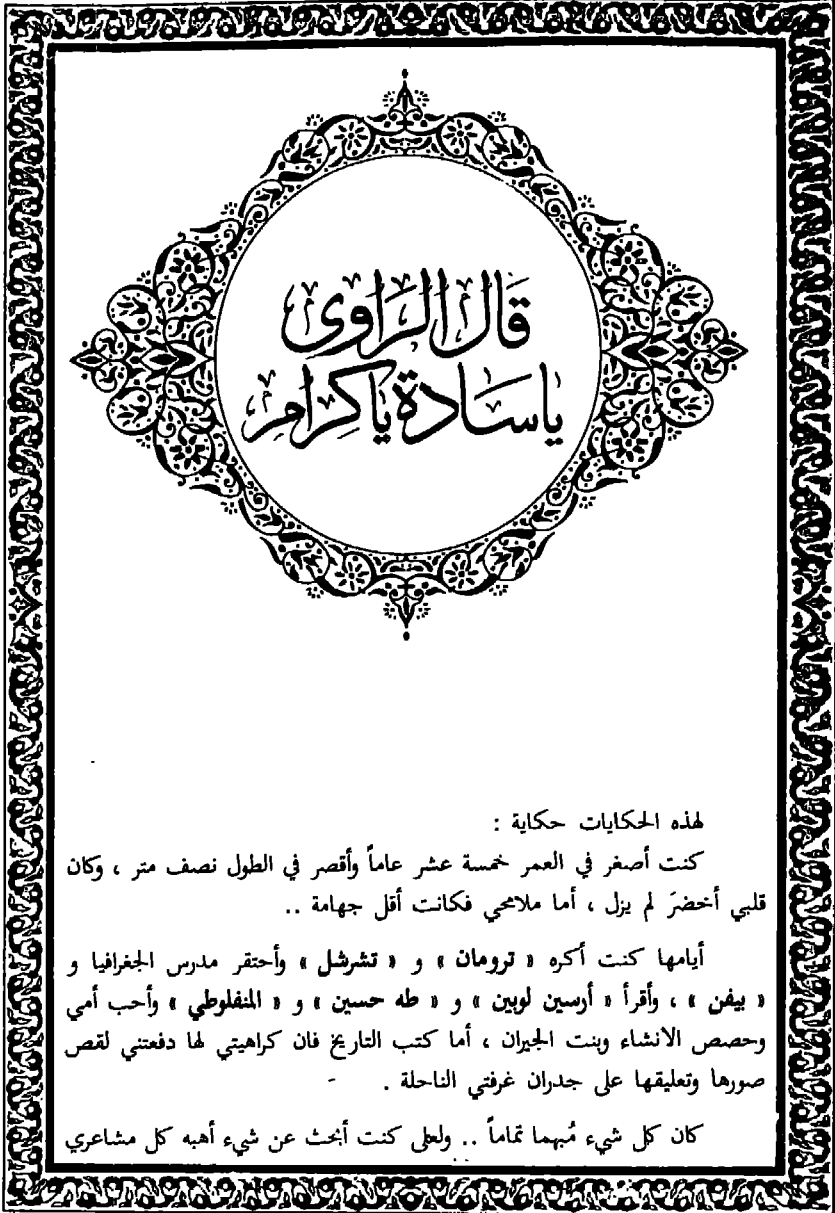 قَال الرَاوى
يا سَادة يا كِرام
لهذه الحكايات حكاية :
كنت أصغر في العمر خمسة عشر عاماً وأقصر في الطول نصف متر ، وكان
قلبي أخضرَ لم يزل ، أما ملامحي فكانت أقل جهامة ..
أيامها كنت أكره « ترومان » و « تشرشل » وأحتقر مدرس الجغرافيا و
« بيفن » ، وأقرأ « أرسين لوبين » و « طه حسين » و « المنفلوطي » وأحب أمي
وحصص الانشاء وبنت الجيران ، أما كتب التاريخ فان كراهيتي لها دفعتني لقص
صورها وتعليقها على جدران غرفتي الناحلة .
كان كل شيء مُبهما تماماً .. ولعلى كنت أبحث عن شيء أهبه كل مشاعري